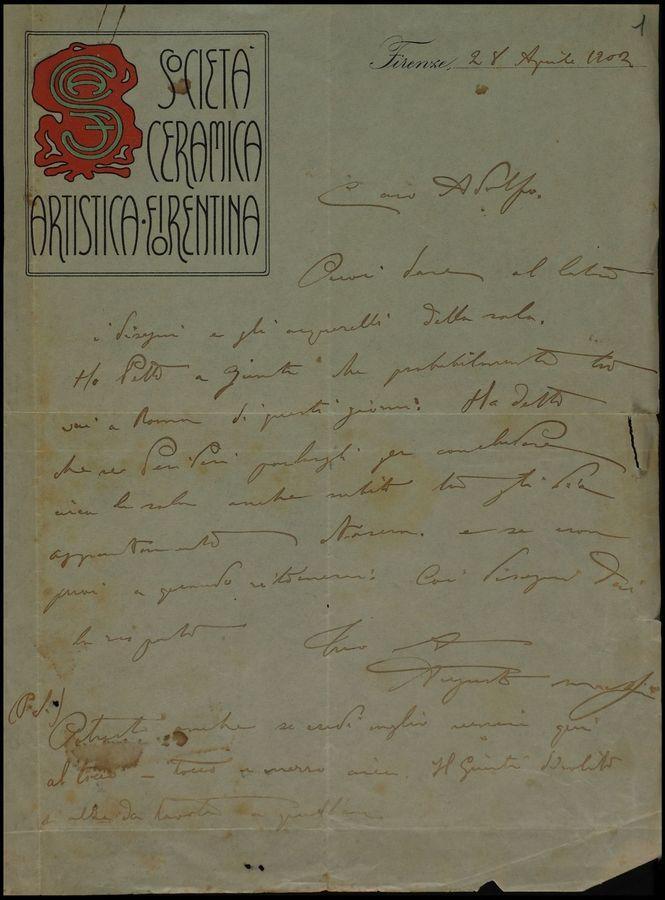 1
SOCIETÀ
CERAMICA
ARTISTICA·FIORENTINA
Firenze, 28 Aprile 1902
Caro Adolfo.
Puoi dare al latore
i disegni e gli acquerelli della sala.
Ho detto a Giunti che probabilmente tu
vai a Roma di questi giorni. Ha detto
che se desideri parlargli per concludere
circa la sala anche subito tu gli dia
appuntamento stasera. e se non
puoi a quando ritornerai. Coi disegni dai
la risposta
Tuo
Augusto
(P.S.)
Potresti anche se credi meglio venire qui
al tocco – tocco e mezzo circa. Il Giunti di solito
si alza da tavola a quell'ora